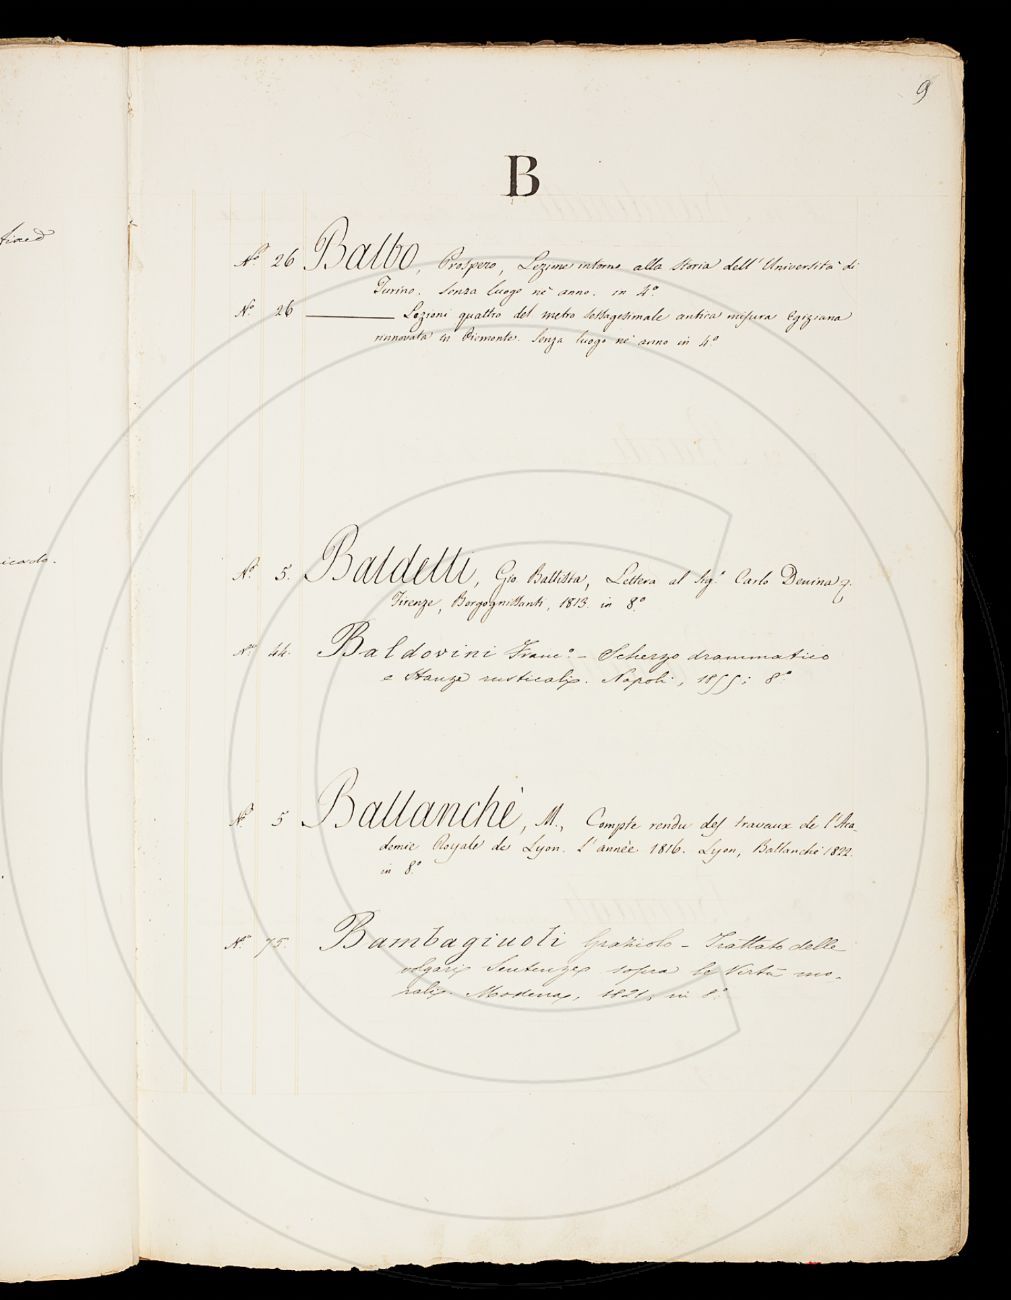 9
B
tized
N.º 26 Balbo, Prospero, Lezione intorno alla storia dell' Università di
Torino. Senza luogo nè anno. in 4.º
N.º 26 ——— Lezioni quattro del metro sessagesimale antica misura egiziana
rinnovata in Piemonte. Senza luogo nè anno in 4.º
icardo.
N.º 5. Baldelli, Gio. Battista, Lettera al Sig.r Carlo Denina &.
Firenze, Borgognissanti, 1813. in 8.º
N.º 44. Baldovini Franc.º – Scherzo drammatico
e Stanze rusticali. Napoli, 1855; 8.º
N.º 5 Ballanchè, M., Compte rendu des travaux de l'Aca-
demie Royale de Lyon. L'année 1816. Lyon, Ballanchè 1822.
in 8.º
N.º 75. Bambagiuoli Graziolo – Trattato delle
volgari Sentenze sopra le Virtù mo-
rali. Modena, 1821, in 8.º